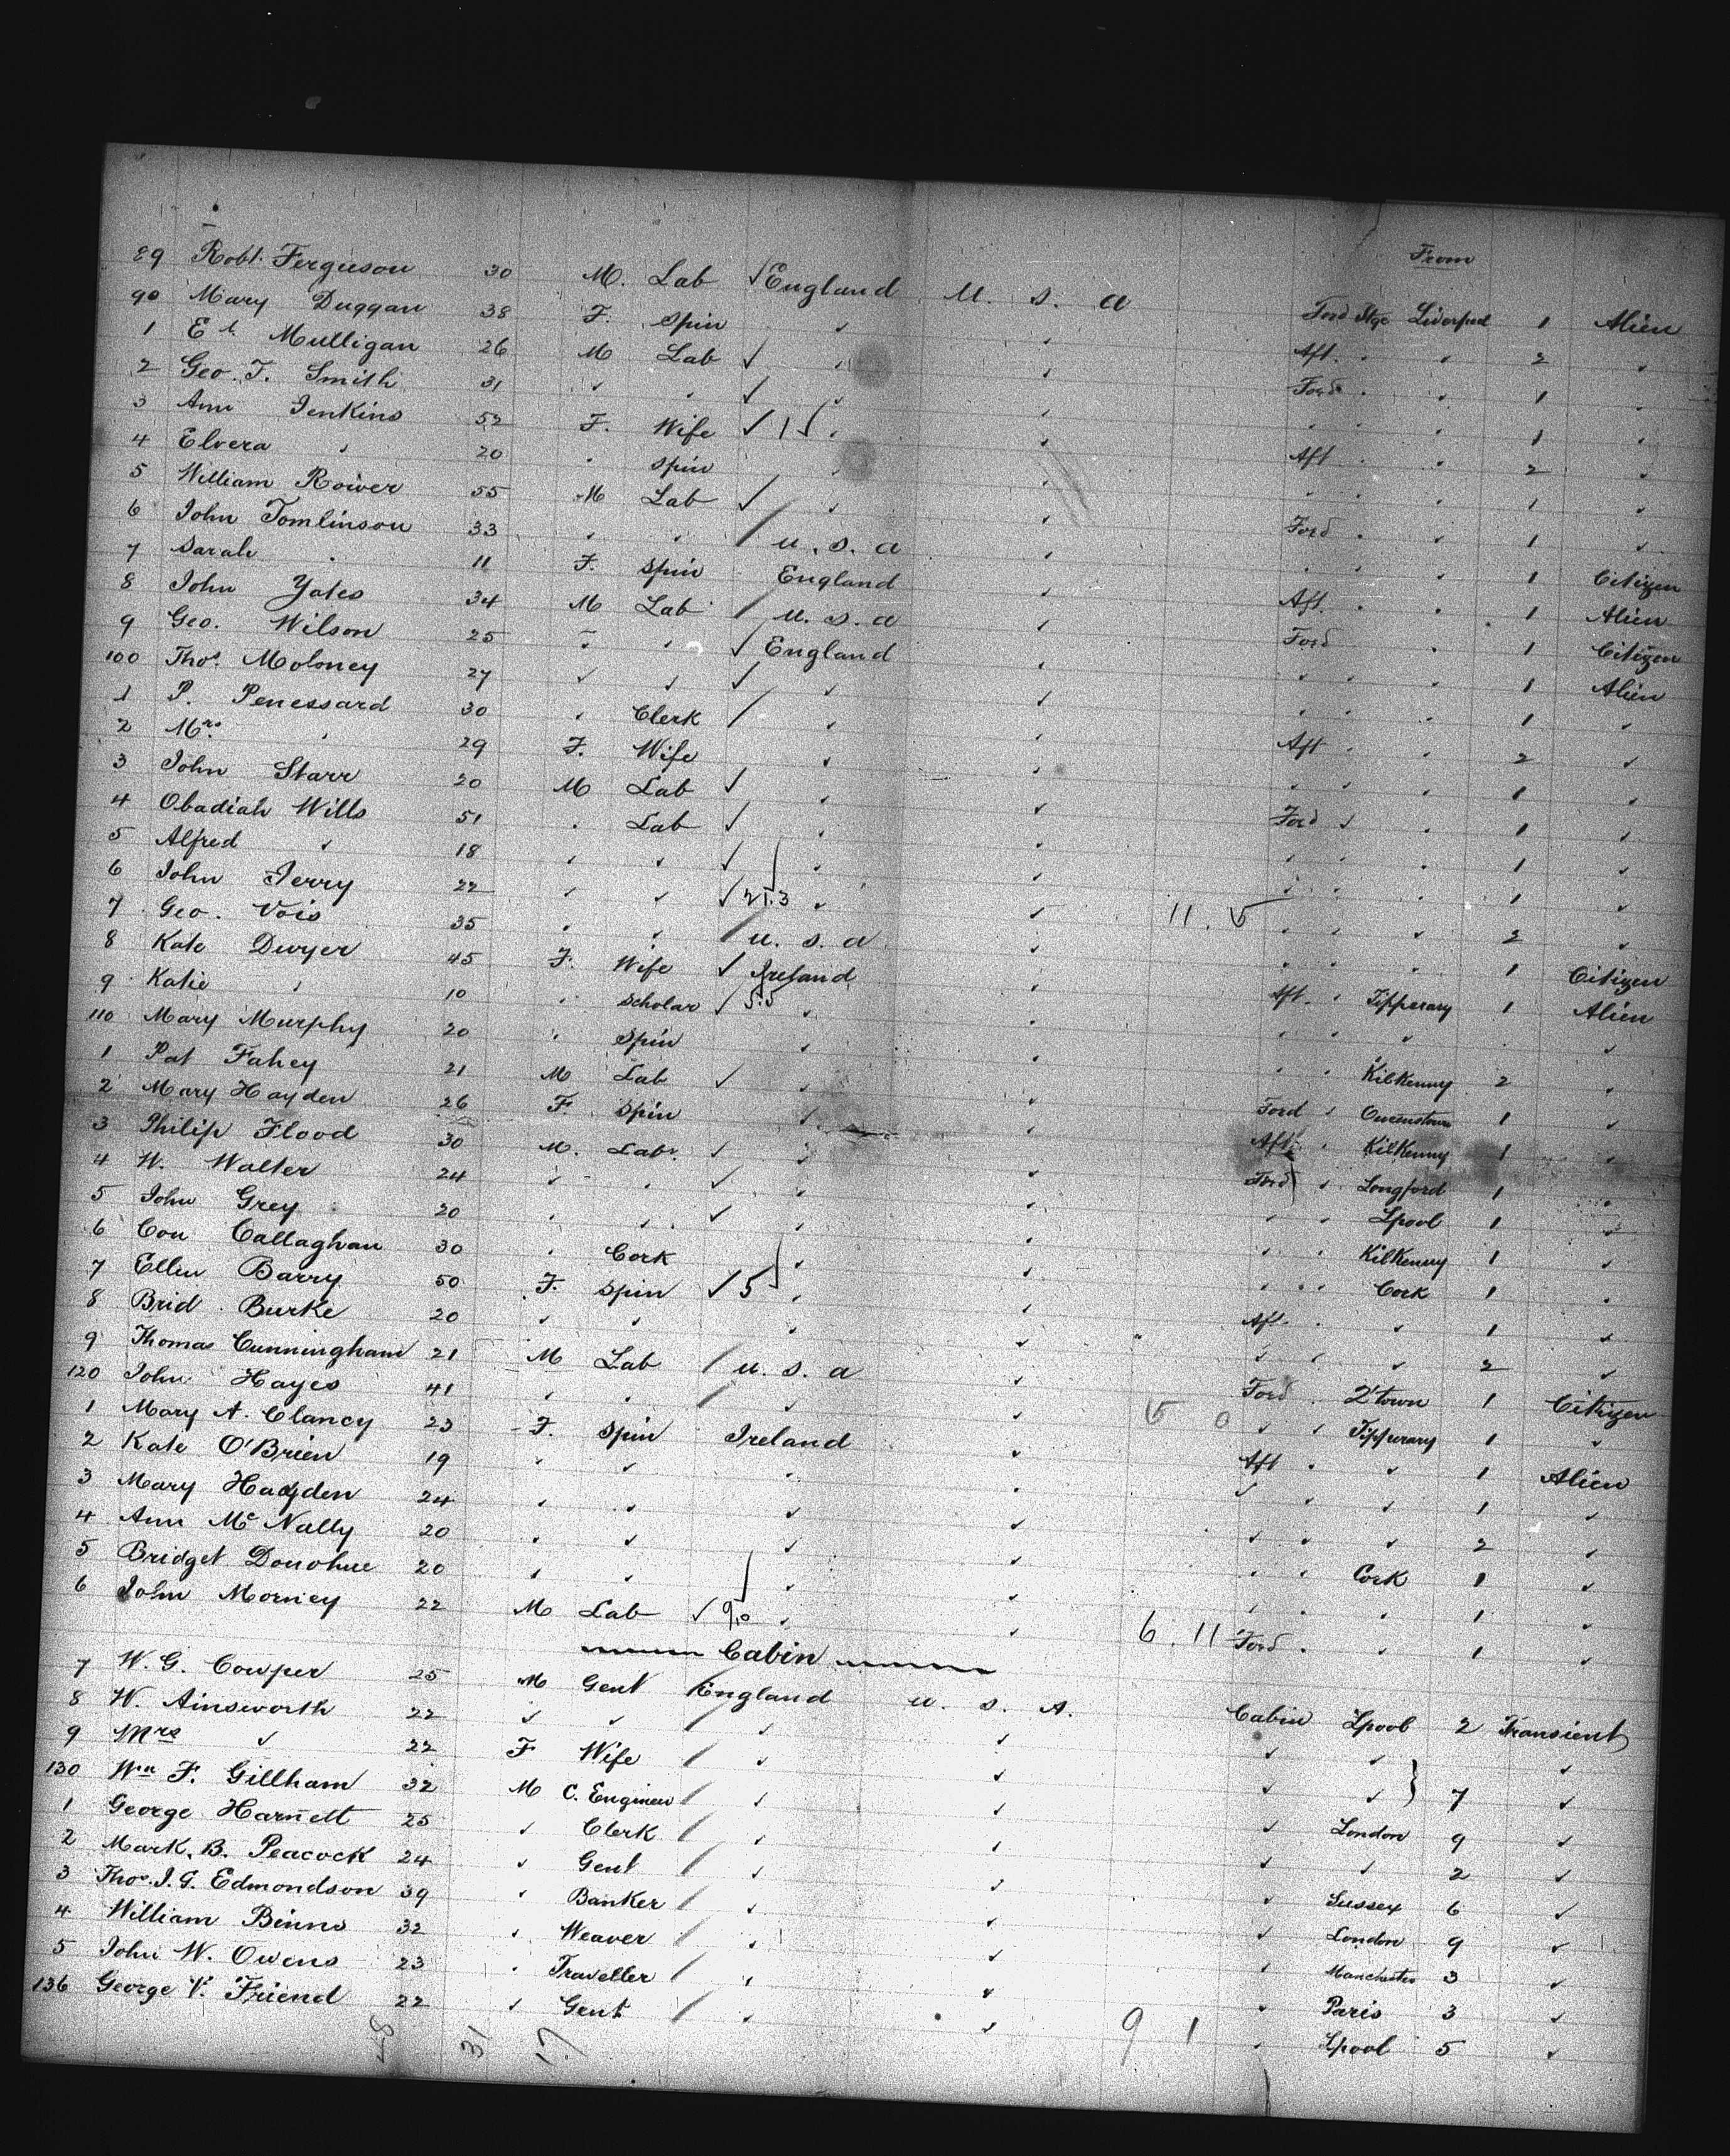 From
89 Robt. Ferguson 30 M. Lab √ England U. S. a Ford Stge Liverpool 1 Alien
90 Mary Duggan 38 F. Spin ✓ ✓ Aft. " ✓ 2 ✓
1 Mulligan 26 M Lab √ " ✓ Ford " ✓ 1 "
2 Geo. T. Smith 31 ✓ " √ ✓ ✓ " " " 1 "
3 Ann Jenkins 52 F. Wife √ 15 " ✓ Aft " " 2 ✓
4 Elvera " 20 " Spin " ✓ " " " 1 "
5 William Rower 55 M Lab √ ✓ ✓ Ford " ✓ 1 ✓
6 John Tomlinson 33 ✓ " / U. S. a ✓ " " " 1 Citizen
7 Sarah " 11 F. Spin England ✓ Aft. " " 1 Alien
8 John Yates 34 M Lab / U. S. a ✓ Ford " 1 Citizen
9 Geo. Wilson 25 " " √ England ✓ " " " 1 Alien
100 Thos. Moloney 27 ✓ ✓ √ ✓ ✓ " " " 1 "
1 P. Penessard 30 " Clerk / " ✓ Aft " " 2 ✓
2 Mrs. " 29 F. Wife ✓ ✓ " " " 1 "
3 John Starr 20 M Lab √ " ✓ Ford ✓ " 1 ✓
4 Obadiah Wills 51 " Lab √ " ✓ " " " 1 ✓
5 Alfred ✓ 18 " ✓ √ " ✓ " " " 1 ✓
6 John Jerry 22 " ✓ √ 21.3 ✓ ✓ 11. 5 " " ✓ 2 ✓
7 Geo. Vois 35 " ✓ / U. S. a ✓ " " " 1 Citizen
8 Kate Dwyer 45 F. Wife √ Ireland ✓ Aft. " Tipperary 1 Alien
9 Katie " 10 " Scholar √ 5.5 " ✓ " " ✓ ✓
110 Mary Murphy 20 " Spin ✓ ✓ " " Kilkenny 2 "
1 Pat Fahey 21 M Lab √ " ✓ Ford " Queenstown 1 ✓
2 Mary Hayden 26 F Spin ✓ ✓ Aft. " Kilkenny 1 "
3 Philip Flood 30 M. Labr. √ " ✓ Ford " Longford 1 "
4 W. Walter 24 ✓ " √ " ✓ " " Lpool 1 "
5 John Grey 20 " " √ ✓ ✓ " " Kilkenny 1 ✓
6 Con Callaghan 30 " Cork ✓ ✓ " " Cork 1 "
7 Ellen Barry 50 F. Spin √ 5 " ✓ Aft. " ✓ 1 ✓
8 Brid. Burke 20 ✓ ✓ ✓ ✓ ✓ " ✓ 2 ✓
9 Thomas Cunningham 21 M Lab / U. S. a ✓ Ford " Q'town 1 Citizen
120 John Hayes 41 " " / ✓ ✓ 5 0 ✓ " Tipperary 1 "
1 Mary A. Clancy 23 F. Spin Ireland ✓ Aft " ✓ 1 Alien
2 Kate O'Brien 19 " ✓ " ✓ ✓ " ✓ 1 ✓
3 Mary Hayden 24 " ✓ ✓ ✓ ✓ " ✓ 2 ✓
4 Ann Mc Nally 20 " ✓ ✓ ✓ " " Cork 1 ✓
5 Bridget Donohue 20 " ✓ ✓ ✓ " " " 1 ✓
6 John Morney 22 M Lab √ 9.0 ✓ ✓ 6. 11 Ford " ✓ 1 ✓
Cabin
7 W. G. Cowper 25 M Gent / England U. S. A. Cabin Lpool 2 Transient
8 W. Ainsworth 22 ✓ ✓ / ✓ ✓ ✓ ✓ } ✓
9 Mrs ✓ 22 F Wife / ✓ ✓ ✓ ✓ } 7 ✓
130 Wm F. Gillham 32 M C. Engineer / ✓ ✓ ✓ London 9 ✓
1 George Harnett 25 ✓ Clerk / ✓ ✓ ✓ ✓ 2 ✓
2 Mark. B. Peacock 24 ✓ Gent / ✓ ✓ ✓ Sussex 6 ✓
3 Thos. J. G. Edmondson 39 ✓ Banker / ✓ ✓ ✓ London 9 ✓
4 William Binns 32 ✓ Weaver / ✓ ✓ " Manchester 3 ✓
5 John W. Owens 23 " Traveller / " ✓ ✓ Paris 3 ✓
136 George V. Friend 22 ✓ Gent / ✓ ✓ 9 1 " Lpool 5 ✓
31 17